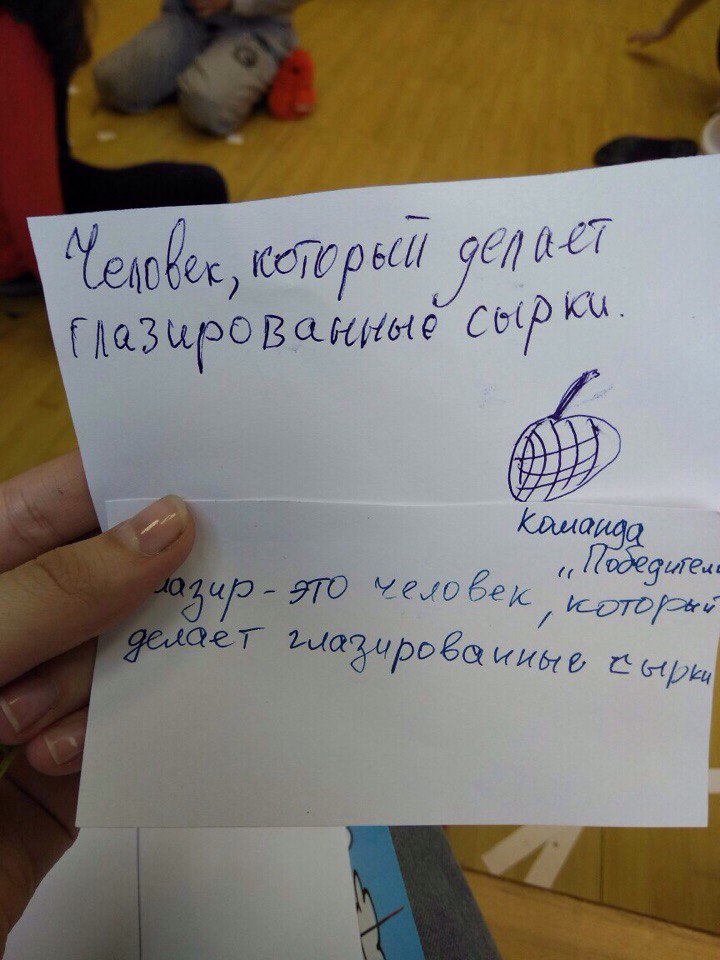 Человек, который делает
глазированные сырки.
команда
„Победители
лазир - это человек, который
делает глазированные сырки